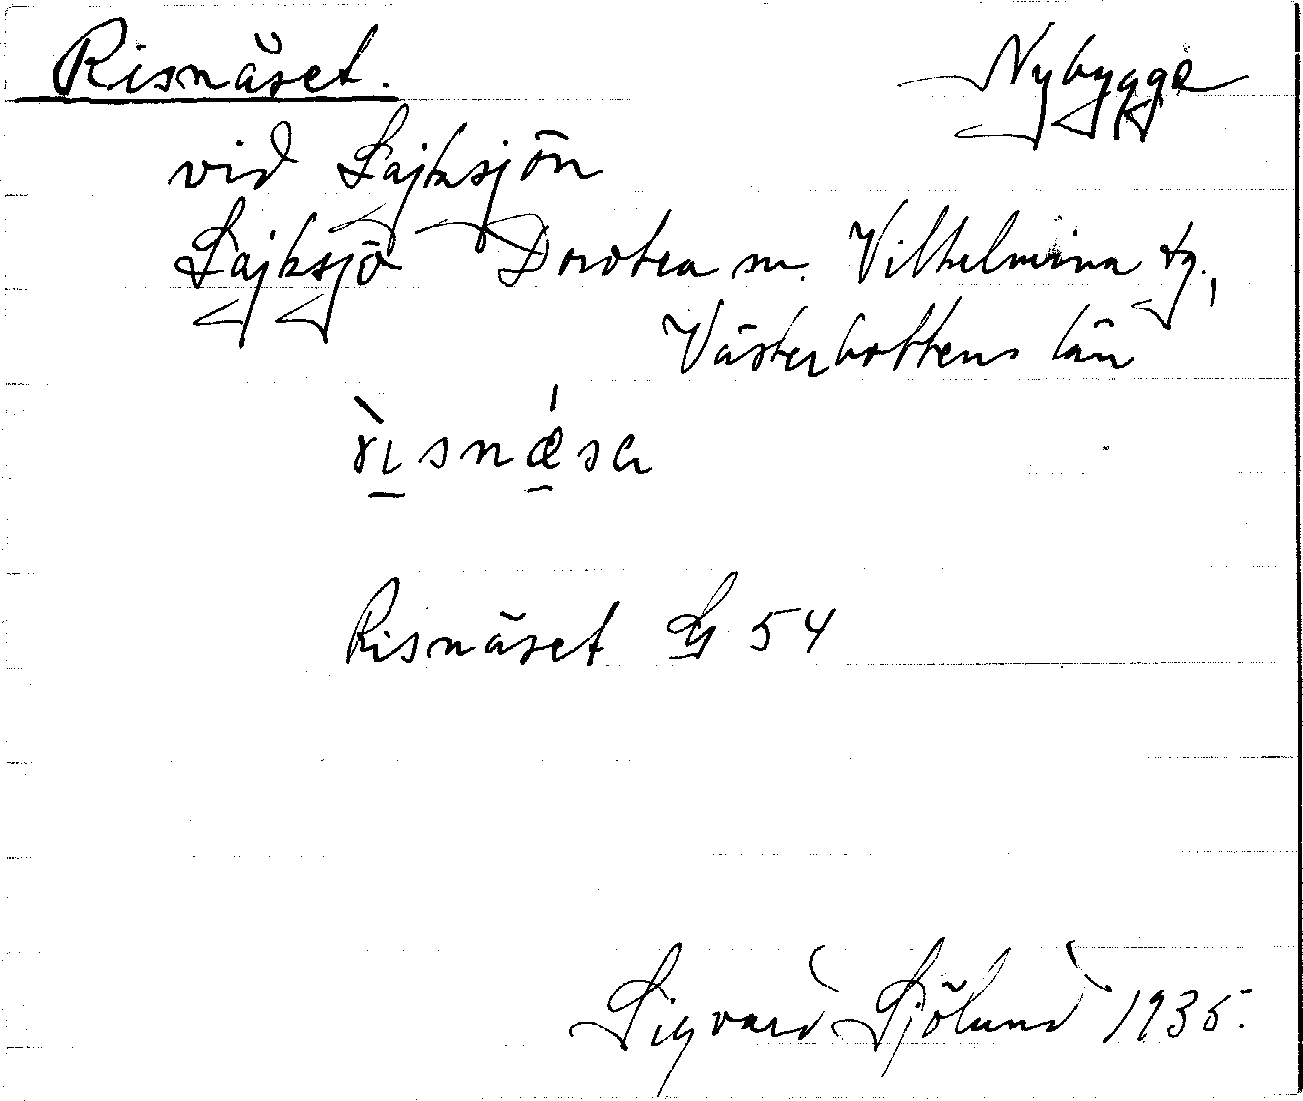 Risnäset. Nybygge
vid Lajksjön
Lajksjö Dorotea sn. Vilhelmina tg.,
Västerbottens län
rı̀snǽsa
Risnäset G 54
Sigvard Sjölund 1935.